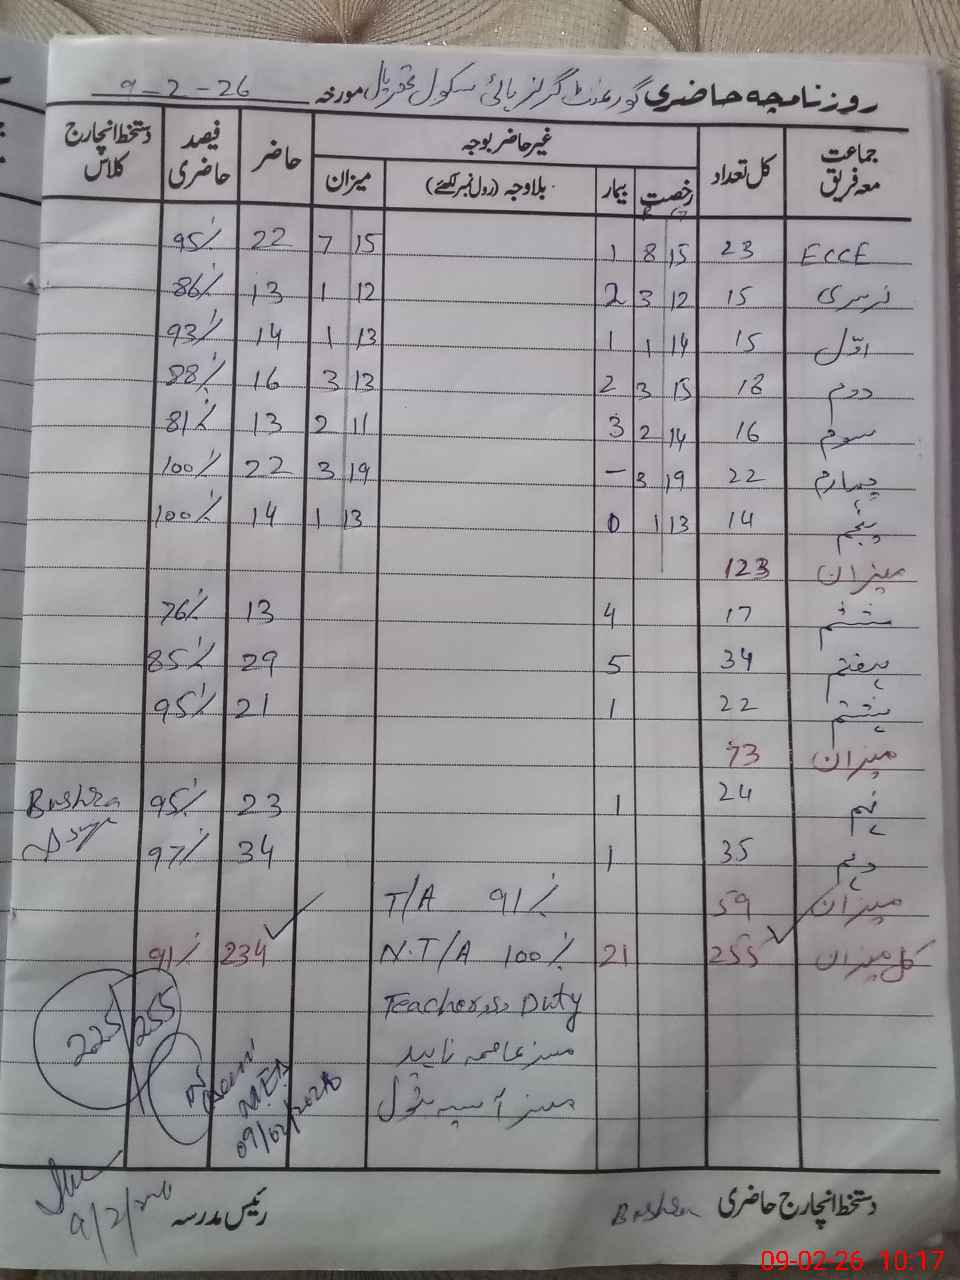 روزنامچہ حاضری گورنمنٹ گرلز ہائی سکول مورخہ 9-2-26
جماعت معہ فریق کل تعداد غیر حاضر بوجہ حاضر فیصد حاضری دستخط انچارج کلاس
رخصت بیمار بلاوجہ (رول نمبر لکھئے) میزان
ECCE 23 15 8 1 15 7 22 95%
نرسری 15 12 3 2 12 1 13 86%
اوّل 15 14 1 1 13 1 14 93%
دوم 18 15 3 2 13 3 16 88%
سوم 16 14 2 3 11 2 13 81%
چہارم 22 19 3 – 19 3 22 100%
پنجم 14 13 1 0 13 1 14 100%
میزان 123
ششم 17 4 13 76%
ہفتم 34 5 29 85%
ہشتم 22 1 21 95%
میزان 73
نہم 24 1 23 95% Bushra
دہم 35 1 34 97%
میزان 59 T/A 91%
کل میزان 255 21 N.T/A 100% 234 91%
Teachers Duty
225/255
مسز عاصمہ ناہید
مسز آسیہ بتول
MEA
09/02/2026
دستخط انچارج حاضری Bushra رئیس مدرسہ
9/2/26
09-02-26 10:17